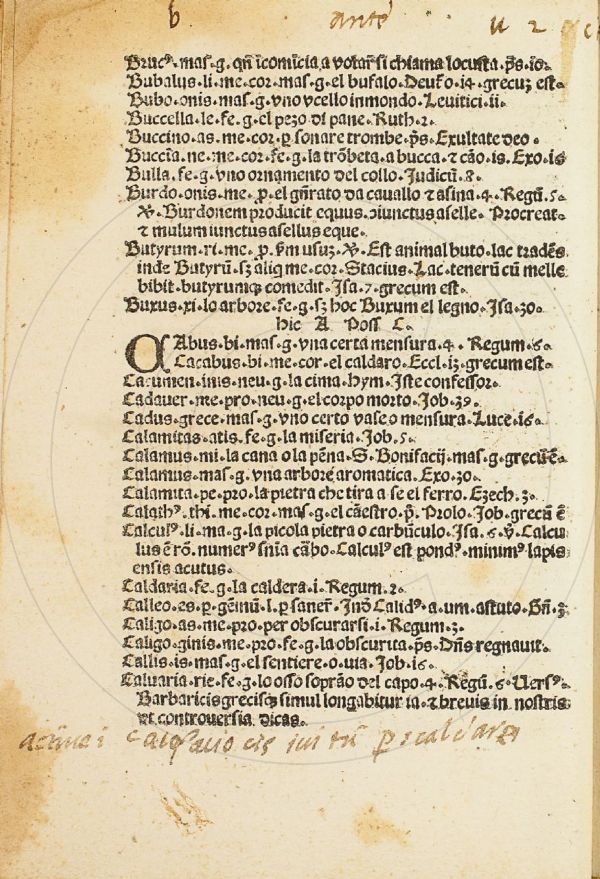 b ante u 2
Bruc⁹·mas·g·qñ icomīcia a votar si chiama locusta·p̄s·io·
Bubalus·li·me·cor·mas·g·el bufalo·Deut̄o·i4·grecuȝ est·
Bubo·onis·mas·g·vno vcello inmondo·Levitici·ii·
Buccella·le·fe·g·el pezo di pane·Ruth·2·
Buccino·as·me·cor·ꝑ sonare trombe·p̄s·Exultate deo·
Buccīa·ne·me·cor·fe·g·la trōbeta·a bucca·ꞇ cāo·is·Exo·i9
Bulla·fe·g·vno ornamento del collo·Judicū·8·
Burdo·onis·me·ꝓ·el gn̄rato da cauallo ꞇ asina·4·Regū·5·
℣·Burdonem producit equus·ɔiunctus aselle·Procreat·
ꞇ mulum iunctus asellus eque·
Butyrum·ri·me·ꝓ·ẜm usuȝ·℣·Est animal buto·lac tradēs
inde Butyrū·sȝ aliq me·cor·Stacius·Lac·tenerū cū melle
bibit·butyrumqȝ comedit·Isa·7·grecum est·
Buxus·xi·lo arbore·fe·g·sȝ hoc Buxum el legno·Isa·30·
hic A Poss C·
CAbus·bi·mas·g·vna certa mensura·4·Regum·6·
Cacabus·bi·me·cor·el caldaro·Eccl·i3·grecum est·
Cacumen·inis·neu·g·la cima·hym·Iste confessor·
Cadauer·me·pro·neu·g·el corpo morto·Job·39·
Cadus·grece·mas·g·vno certo vaseo mensura·Luce·i6·
Calamitas·atis·fe·g·la miseria·Job·5·
Calamus·mi·la cana o la pēna·S·Bonifacij·mas·g·grecū ē·
Calamus·mas·g·vna arbore aromatica·Exo·30·
Calamita·pe·pro·la pietra che tira a se el ferro·Ezech·3·
Calath⁹·thi·me·cor·mas·g·el cāestro·p̄·Prolo·Job·grecū ē
Calcul⁹·li·ma·g·la picola pietra o carbūculo·Isa·6·℣·Calcu
lus ē rō·numer⁹ sn̄ia cābo·Calcul⁹ est pond⁹·minim⁹ lapis
ensis acutus·
Caldaria·fe·g·la caldera·i·Regum·2·
Calleo·es·ꝑ·gēminū·l·ꝑ saneř·Inō Calid⁹·a·um·astuto·Gn̄·3
Caligo·as·me·pro·per obscurarsi·i·Regum·3·
Caligo·ginis·me·pro·fe·g·la obscurita·p̄s·Dn̄s regnauit·
Callis·is·mas·g·el sentiere·o uia·Job·i6·
Caluaria·rie·fe·g·lo osso soprāo del capo·4·Regū·6·Uers⁹·
Barbaricis grecisqȝ simul longabitur ia·ꞇ breuis in nostris
vt controversia dicas·